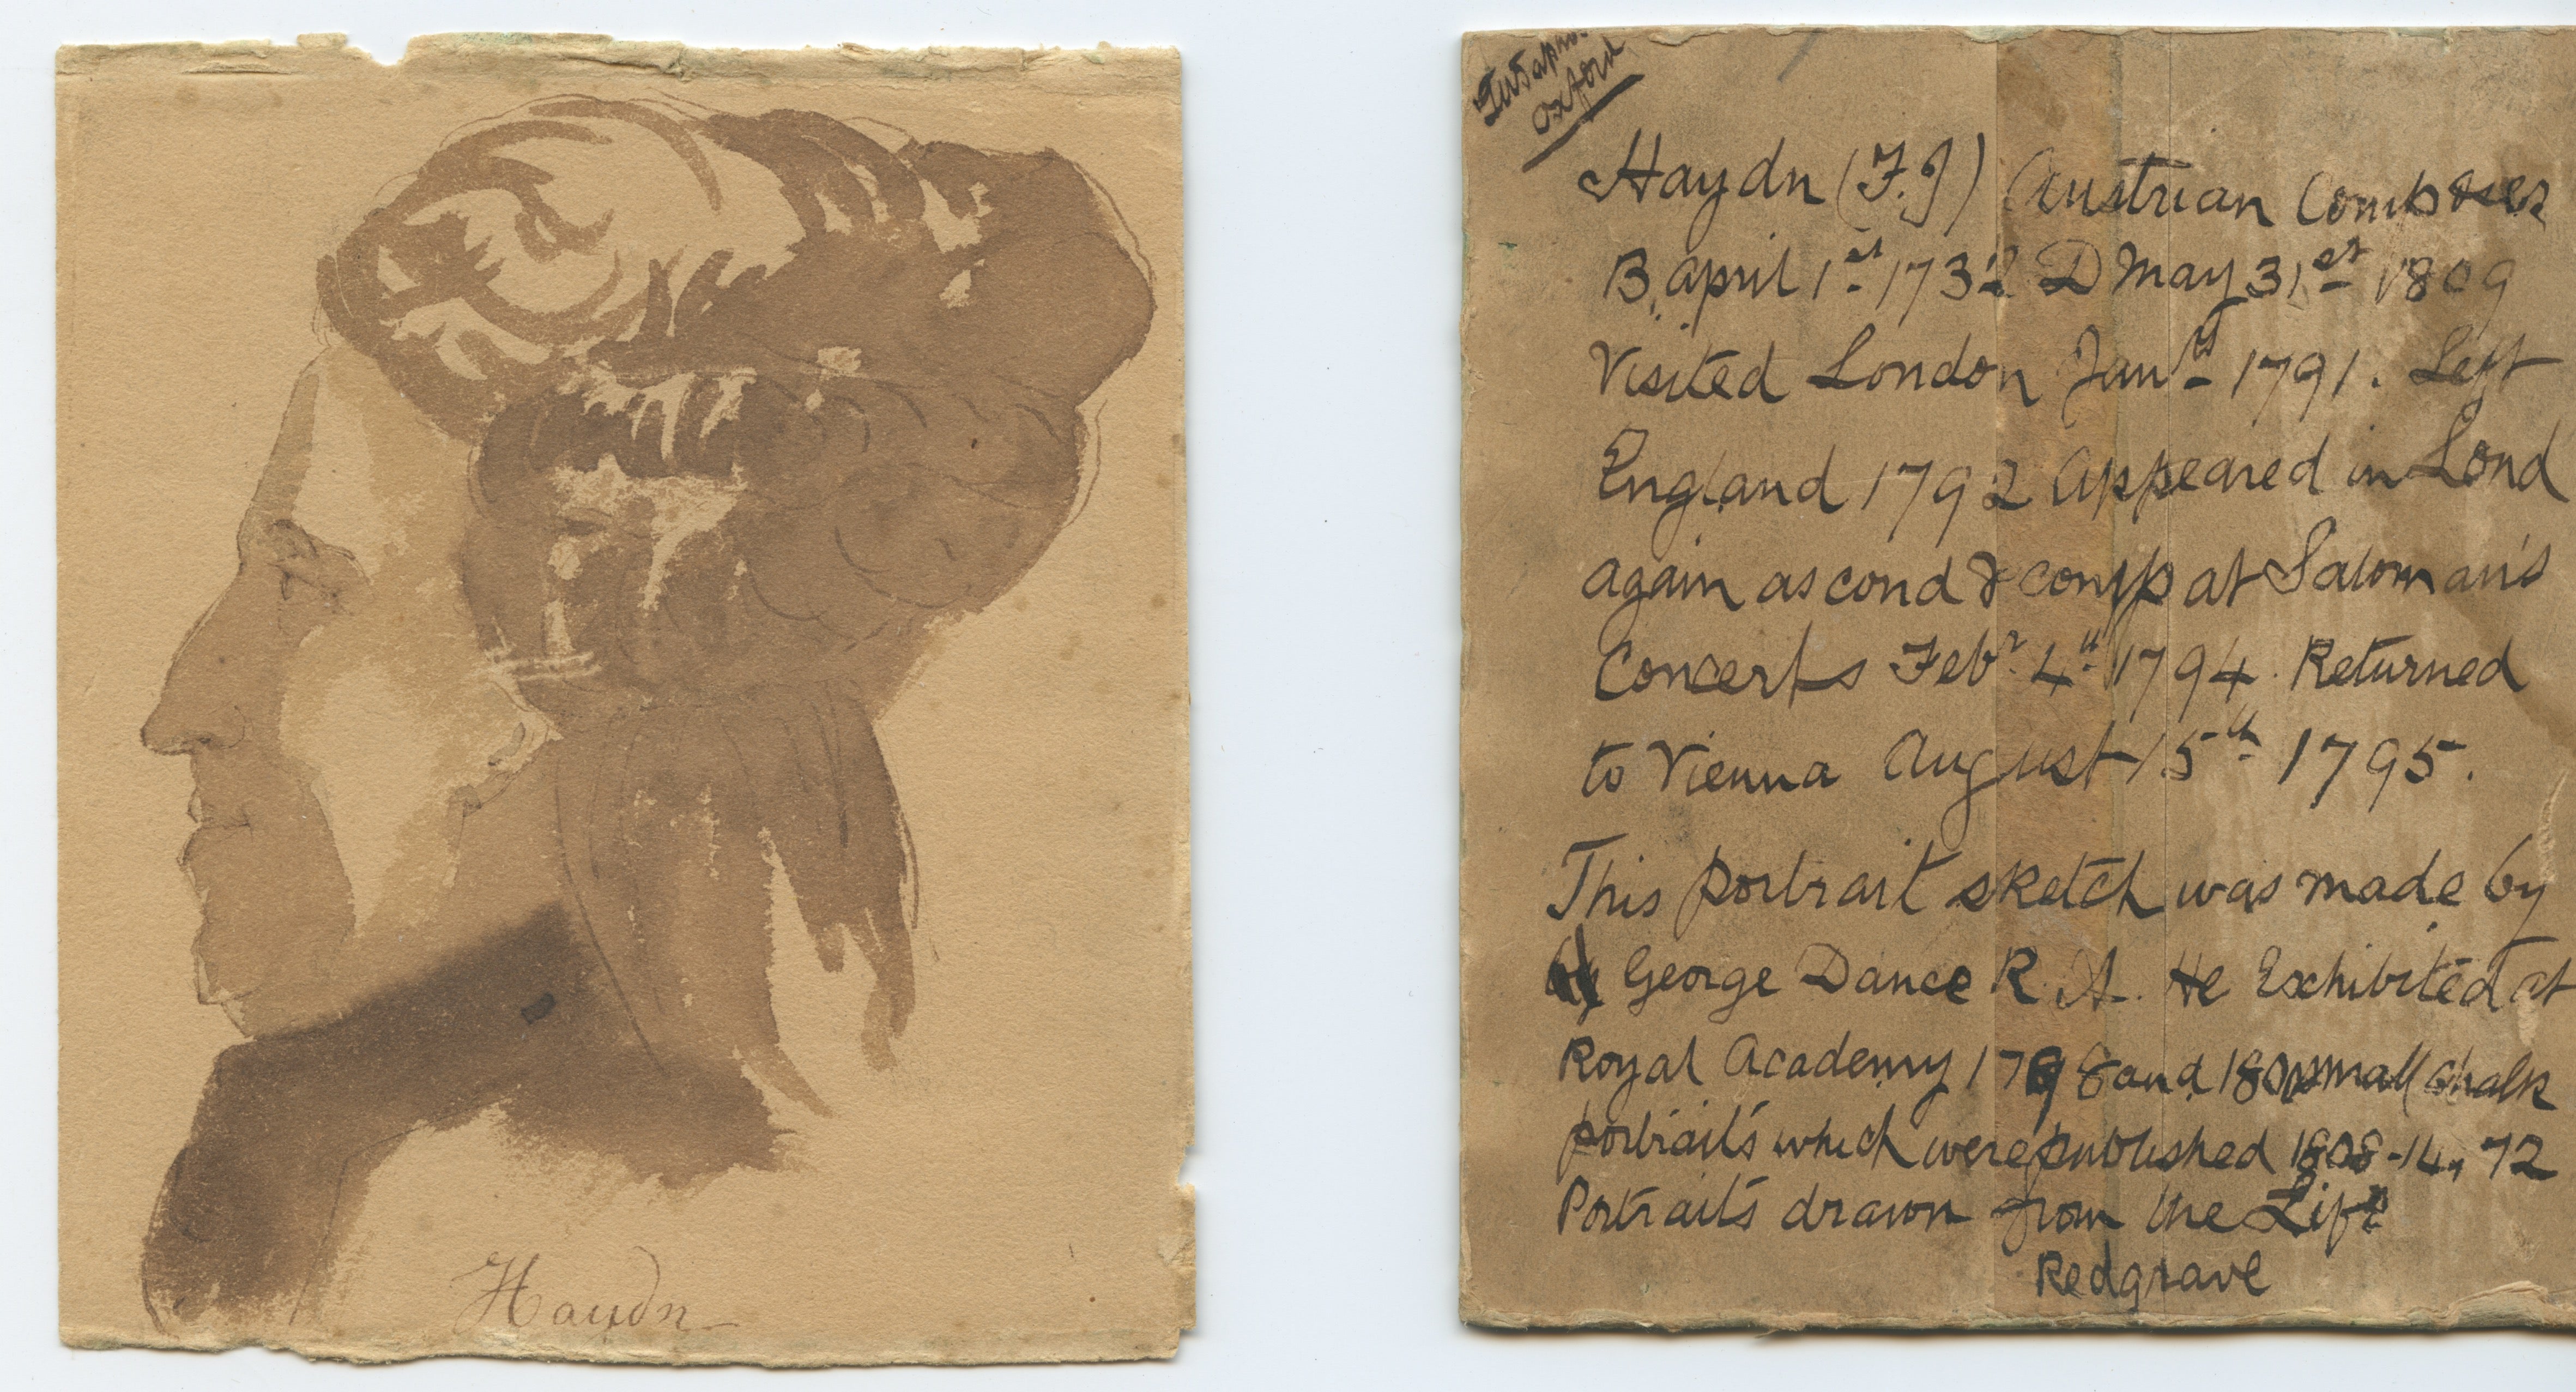 Haydn
Oxford
Haydn (F.J) Austrian Composer
B. April 1st 1732 D May 31st 1809
Visited London Jany 1791. Left
England 1792 Appeared in Lond
again as cond & comp at Saloman's
Concerts Feby 4th 1794. Returned
to Vienna August 15th 1795.
This portrait sketch was made by
George Dance R.A. He Exhibited at
Royal Academy 1798 and 1800 small chalk
portraits which were published 1808-14, 72
Portraits drawn from the Life
Redgrave